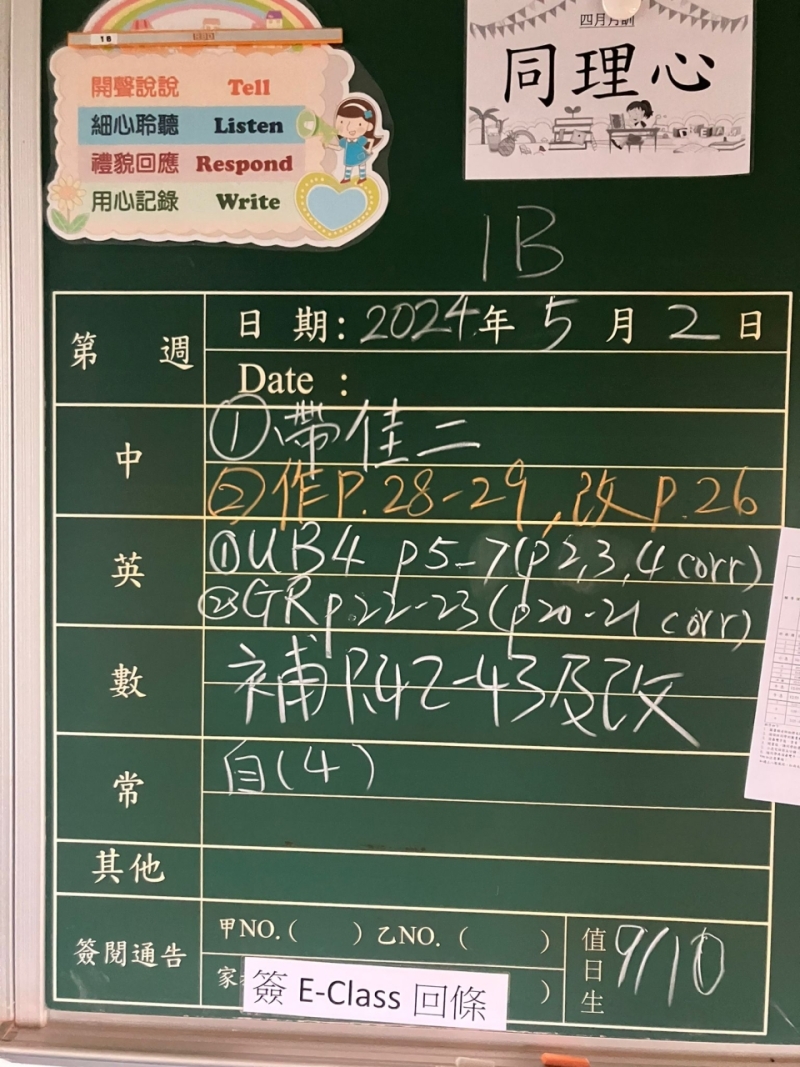 1B
開聲說說 Tell
細心聆聽 Listen
禮貌回應 Respond
用心記錄 Write
四月月訓
同理心
1B
第 週
日 期: 2024年 5 月 2 日
Date :
中
①帶佳二
②作P.28-29,改P.26
英
①UB4 p5-7(p2,3,4 corr)
②GRp.22-23(p20-21 corr)
數
補P.42-43及改
常
自(4)
其他
簽閱通告
甲NO.( ) 乙NO. ( )
家 )
簽 E-Class 回條
值日生 9/10